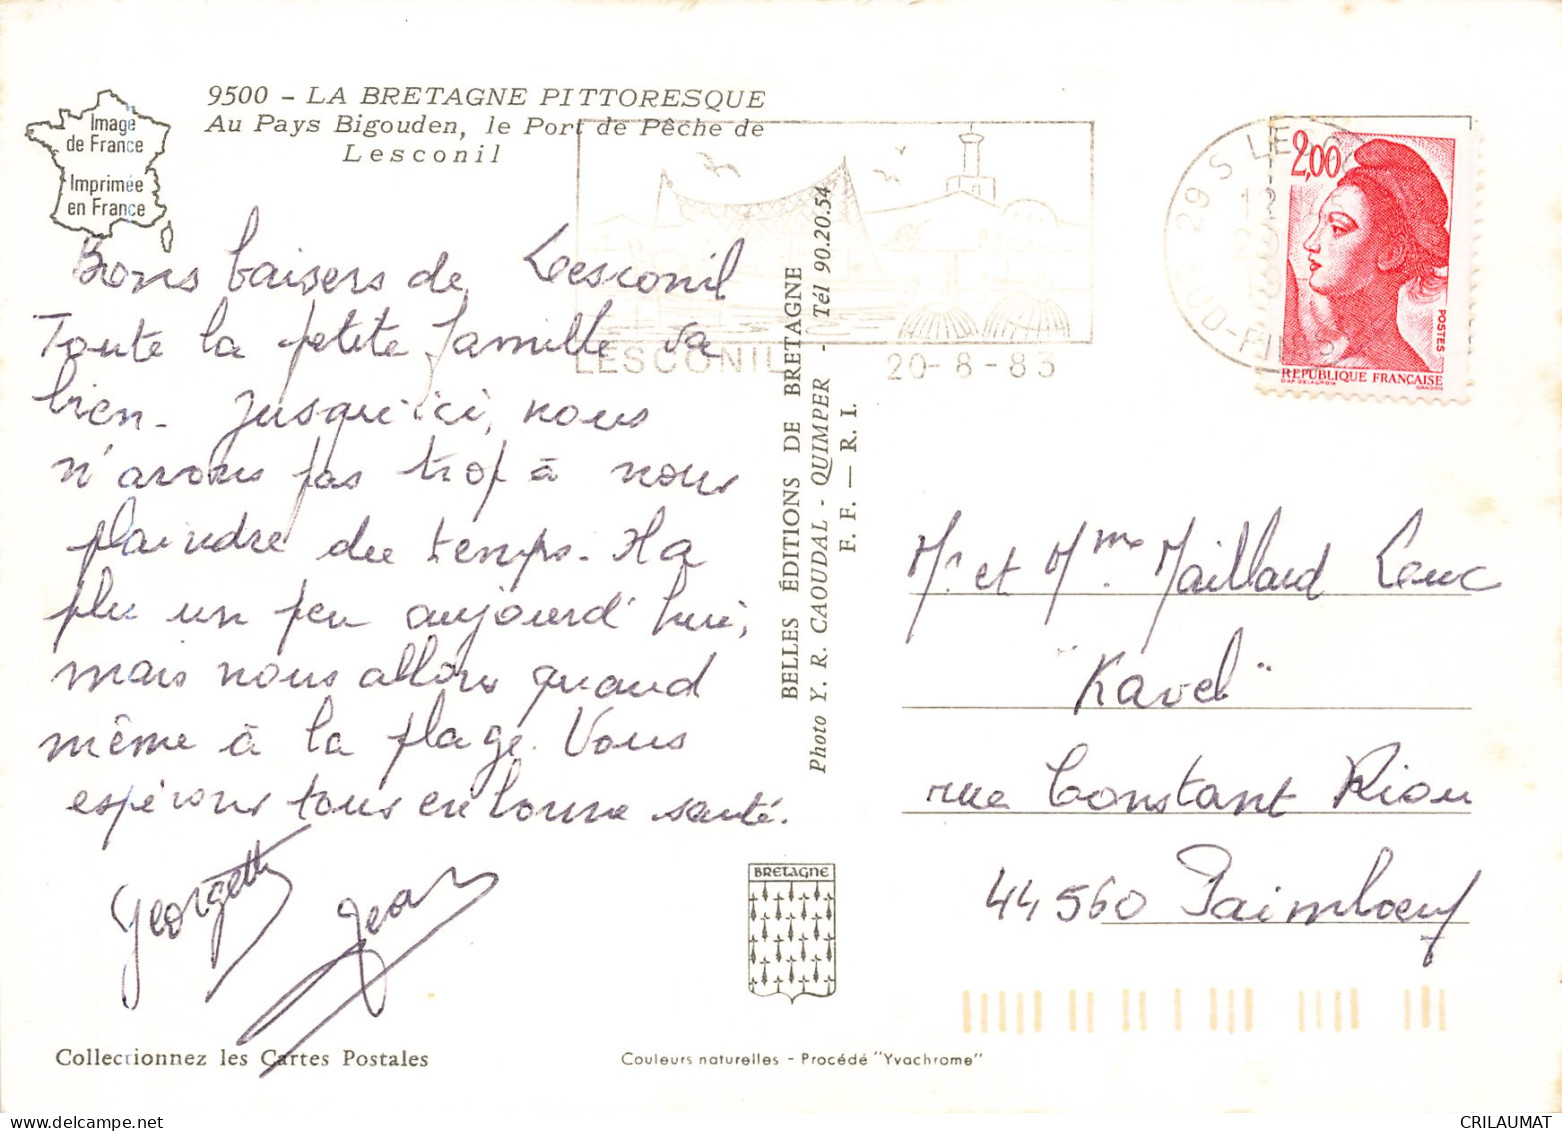 9500 - LA BRETAGNE PITTORESQUE
Au Pays Bigouden, le Port de Pêche de
Lesconil
Image
de France
Imprimée
en France
Bons baisers de Lesconil
Toute la petite famille va
bien. Jusqu'ici, nous
n'avons pas trop à nous
plaindre du temps. Il a
plu un peu aujourd'hui,
mais nous allons quand
même à la plage. Vous
espérons tous en bonne santé.
Georgette
Jean
Collectionnez les Cartes Postales
LESCONIL
20-8-83
BELLES ÉDITIONS DE BRETAGNE
Photo Y. R. CAOUDAL - QUIMPER - Tél 90.20.54
F. F. — R. I.
BRETAGNE
Couleurs naturelles - Procédé "Yvachrome"
29 S LE
UD-FIN
2,00
POSTES
REPUBLIQUE FRANÇAISE
DAP. DELACROIX
GANDON
Mr et Mme Maillard Luc
"Kavel"
rue Constant Riou
44560 Paimboeuf
CRILAUMAT